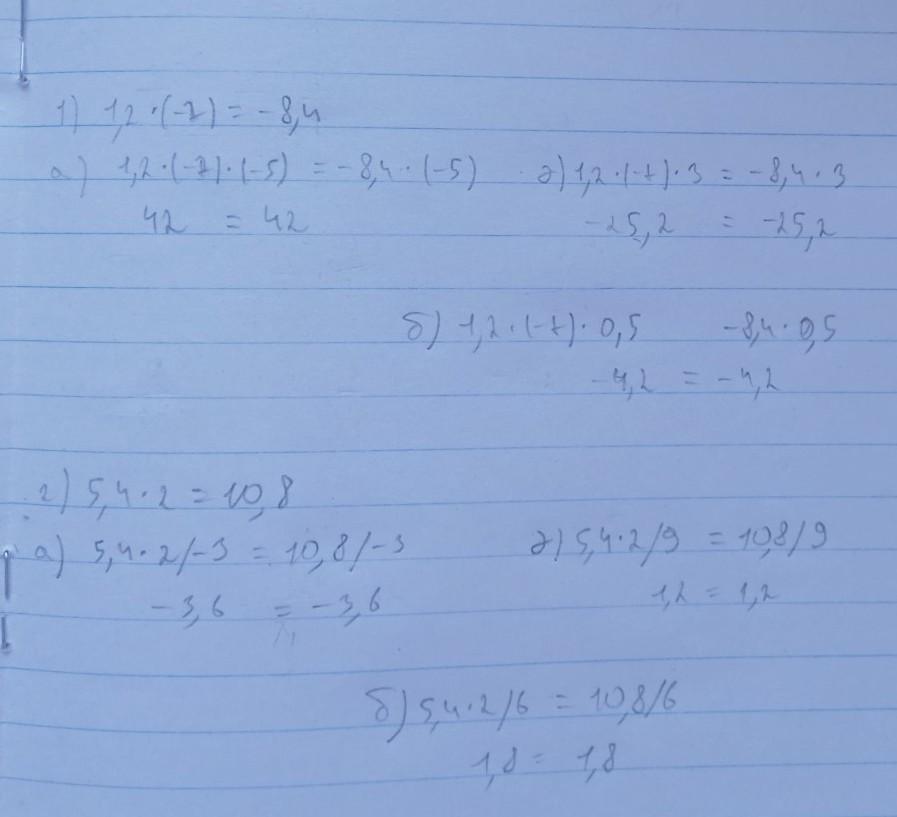 1) 1,2·(-7) = -8,4
а) 1,2·(-7)·(-5) = -8,4·(-5) д) 1,2·(-7)·3 = -8,4·3
42 = 42 -25,2 = -25,2
б) 1,2·(-7)·0,5 -8,4·0,5
-4,2 = -4,2
2) 5,4·2 = 10,8
а) 5,4·2/-3 = 10,8/-3 д) 5,4·2/9 = 10,8/9
-3,6 = -3,6 1,2 = 1,2
б) 5,4·2/6 = 10,8/6
1,8 = 1,8